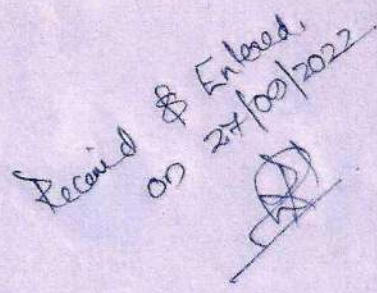 Received & Entered.
on 27/08/2022